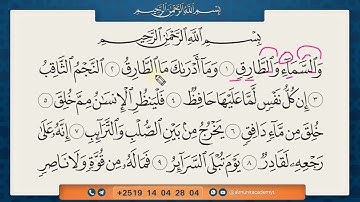 بِسْمِ اللَّهِ الرَّحْمَٰنِ الرَّحِيمِ
بِسْمِ اللَّهِ الرَّحْمَٰنِ الرَّحِيمِ
وَالسَّمَاءِ وَالطَّارِقِ ١ وَمَا أَدْرَىٰكَ مَا الطَّارِقُ ٢ النَّجْمُ الثَّاقِبُ
٣ إِن كُلُّ نَفْسٍ لَّمَّا عَلَيْهَا حَافِظٌ ٤ فَلْيَنظُرِ الْإِنسَٰنُ مِمَّ خُلِقَ ٥
خُلِقَ مِن مَّاءٍ دَافِقٍ ٦ يَخْرُجُ مِنۢ بَيْنِ الصُّلْبِ وَالتَّرَائِبِ ٧ إِنَّهُ عَلَىٰ
رَجْعِهِ لَقَادِرٌ ٨ يَوْمَ تُبْلَى السَّرَائِرُ ٩ فَمَا لَهُ مِن قُوَّةٍ وَلَا نَاصِرٍ
+2519 14 04 28 04